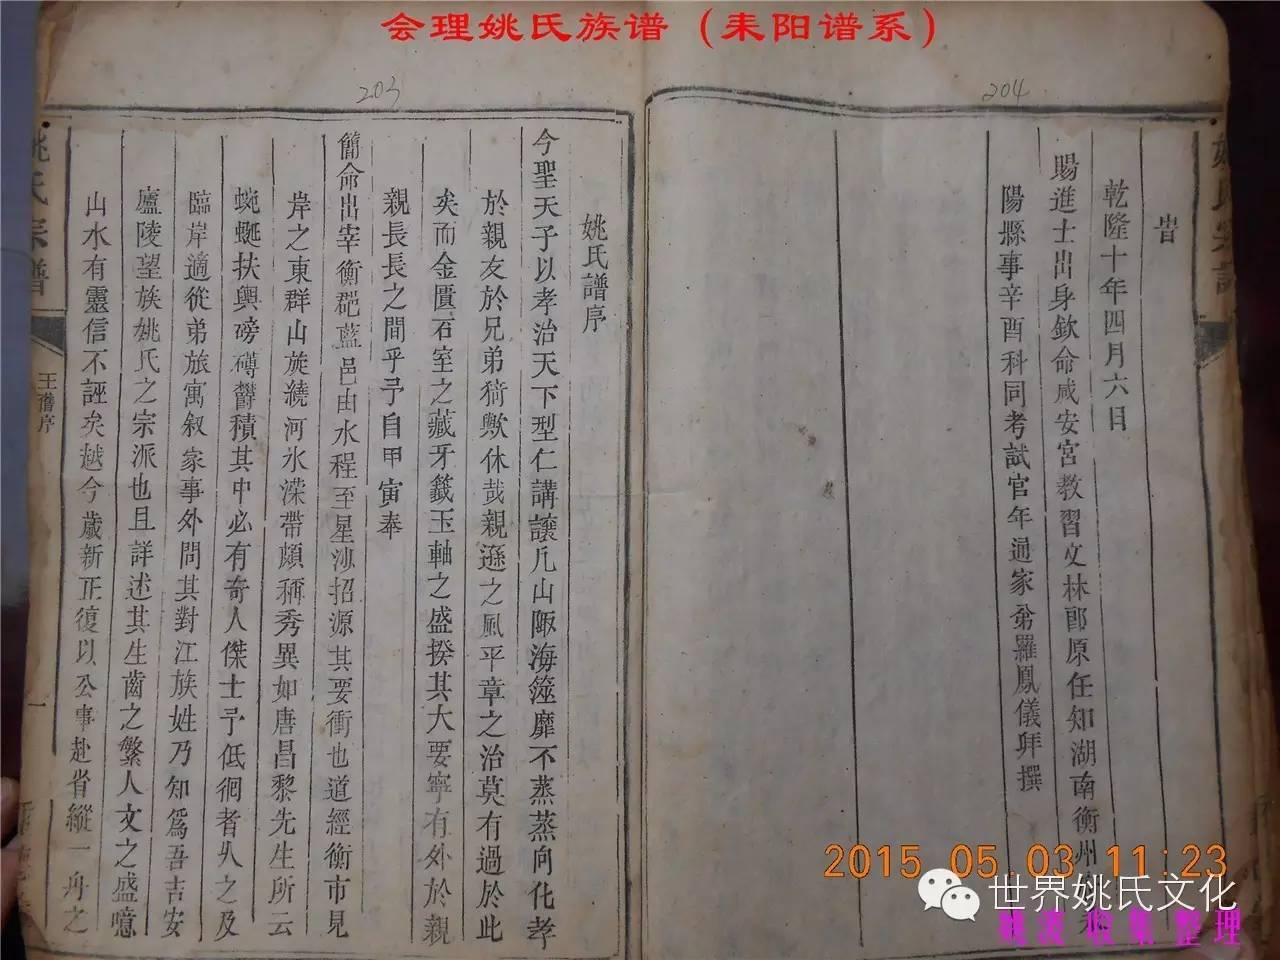 会理姚氏族谱（耒阳谱系）
204
旹
乾隆十年四月六日
賜進士出身欽命咸安宮教習文林郎原任知湖南衡州
陽縣事辛酉科同考試官年通家弟羅鳳儀拜撰
203
姚氏譜序
今聖天子以孝治天下型仁講讓凡山陬海澨靡不蒸蒸向化孝
於親友於兄弟猗歟休哉親遜之風平章之治莫有過於此
矣而金匱石室之藏牙籤玉軸之盛揆其大要寧有外於親
親長長之間乎予自甲寅奉
簡命出宰衡郡藍邑由水程至星沙招源其要衝也道經衡市見
岸之東群山旋繞河水濚帶頗稱秀異如唐昌黎先生所云
蜿蜒扶輿磅礡鬱積其中必有奇人傑士予低徊者久之及
臨岸適從弟旅寓叙家事外問其對江族姓乃知為吾吉安
廬陵望族姚氏之宗派也且詳述其生齒之繁人文之盛噫
山水有靈信不誣矣越今歲新正復以公事赴省縱一舟之
姚氏宗譜
王舊序
一
2015 05 03 11:23
世界姚氏文化
收集整理